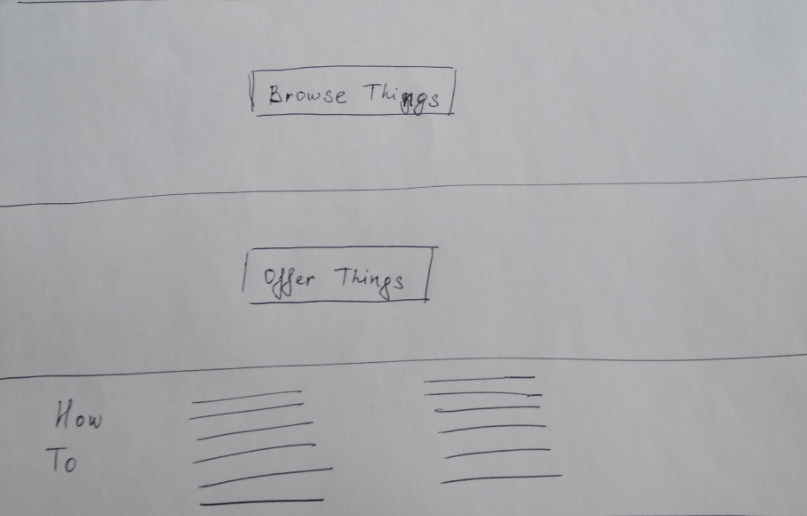 Browse Things
Offer Things
How
To